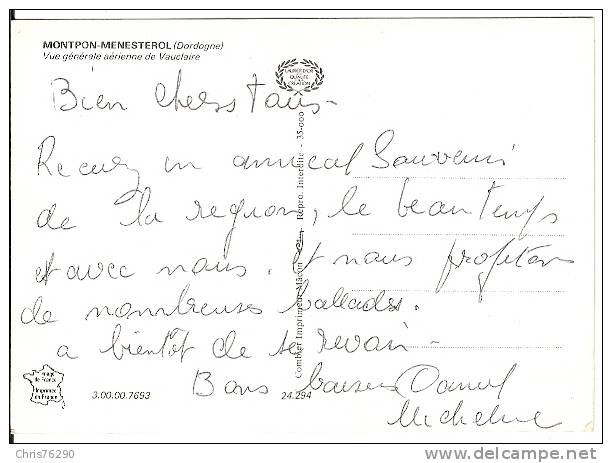 MONTPON-MENESTEROL (Dordogne)
Vue générale aérienne de Vauclaire
LAURIER D'OR
DE LA
QUALITÉ
CRÉATION
Bien chers tous -
Recevez un amical Souvenir
de la region, le beau temps
est avec nous. et nous profitons
de nombreuses ballades.
a bientôt de se revoir -
Bons baisers Daniel
Micheline
Combier Imprimeur Mâcon
Repro. Interdite - 35-000
Image
de France
Imprimée
en France
3.00.00.7693
24.294
Chris76290
www.delcampe.net